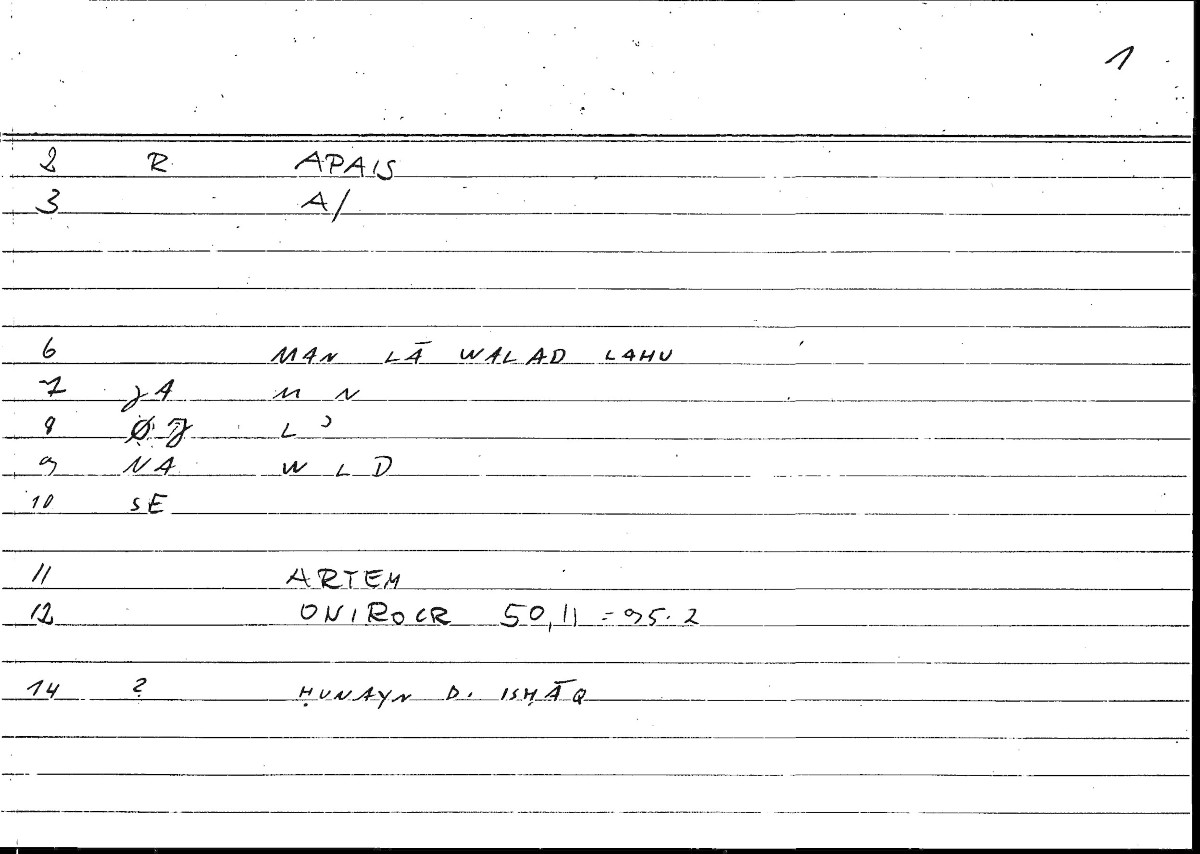 1
2 R APAIS
3 A/
6 MAN LĀ WALAD LAHU
7 JA M N
8 L ʾ
9 NA W L D
10 SE
11 ARTEM
12 ONIROCR 50,11 = 95.2
14 2 ḤUNAYN B. ISḤĀQ